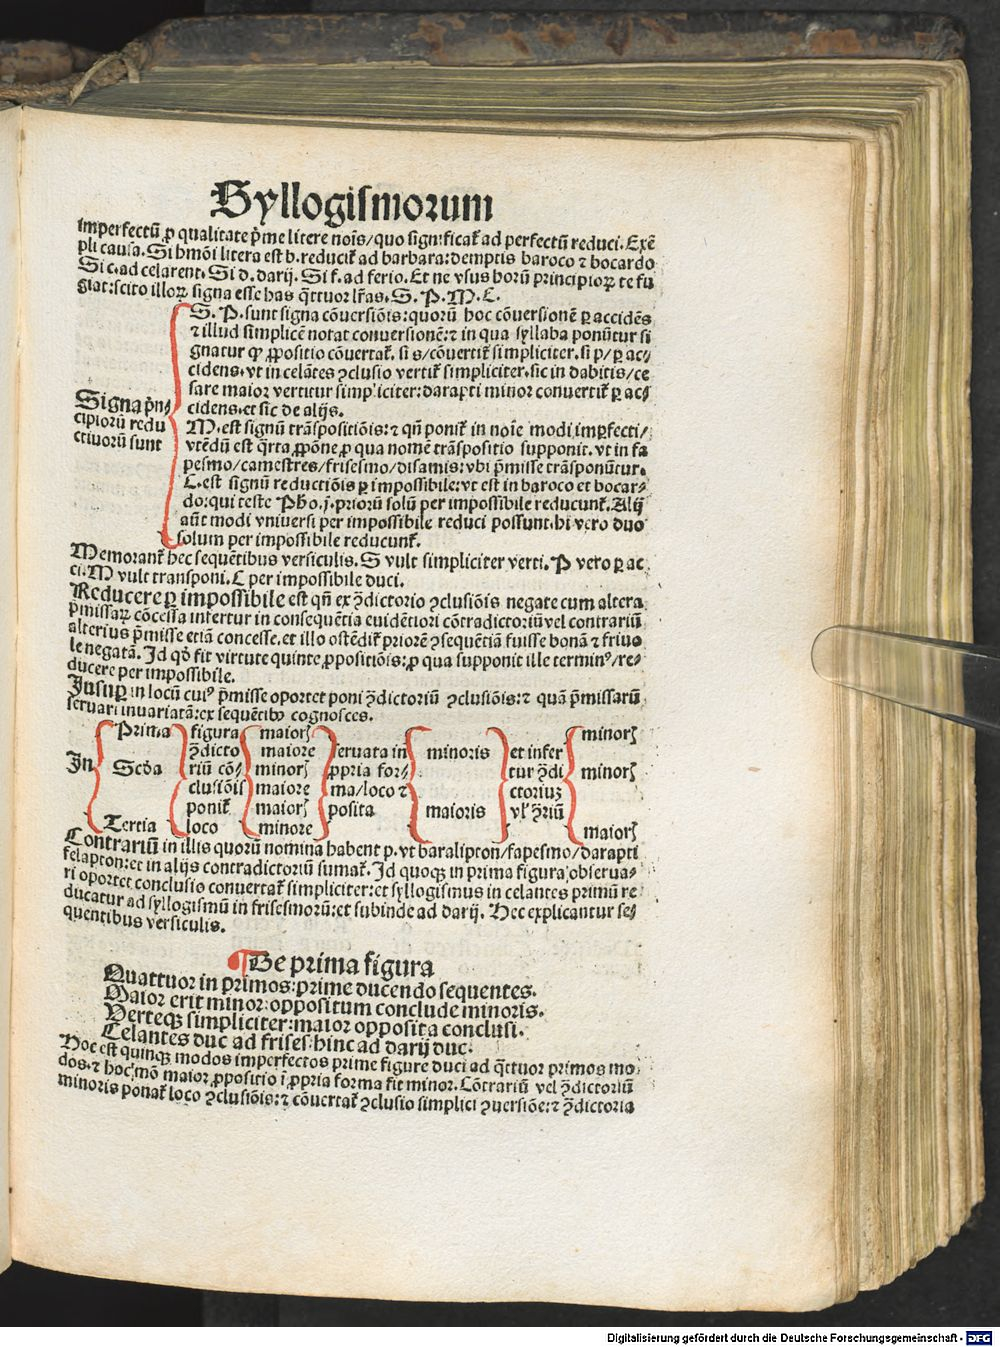 Syllogismorum
imperfectū ꝓ qualitate p̄me litere noīs/quo significat̄ ad perfectū reduci. Exē
pli causa. Si hmōi litera est b. reducit̄ ad barbara: demptis baroco ⁊ bocardo
Si c. ad celarent. Si d. darij. Si f. ad ferio. Et ne vsus horū principioꝝ te fu
giat: scito illoꝝ signa esse has q̄ttuor lr̄as. S. P. M. C.
S. P. sunt signa cōuersiōis: quorū hoc cōuersionē ꝑ accidēs
⁊ illud simplicē notat conuersionē: ⁊ in qua syllaba ponūtur si
gnatur ꝙ ꝓpositio cōuertat̄. si s/cōuertit̄ simpliciter. si p/ꝑ ac⸗
cidens. vt in celātes ꝯclusio vertit̄ simpliciter. sic in dabitis/ce
sare maior vertitur simpliciter: darapti minor conuertit̄ ꝑ ac⸗
cidens. et sic de alijs.
Signa p̄n⸗
cipiorū redu
ctiuorū sunt
M. est signū trāspositiōis: ⁊ qn̄ ponit̄ in noīe modi imꝑfecti/
vtēdū est q̄rta ꝓpōne ꝓ qua nomē trāspositio supponit. vt in fa
pesmo/camestres/frisesmo/disamis: vbi p̄misse trāsponūtur.
C. est signū reductiōis ꝑ impossibile: vt est in baroco et bocar⸗
do: qui teste Pho. j. priorū solū per impossibile reducunt̄. Alij
aūt modi vniuersi per impossibile reduci possunt. hi vero duo
solum per impossibile reducunt̄.
Memorant̄ hec sequētibus versiculis. S vult simpliciter verti. P vero ꝑ ac
ci. M vult transponi. C per impossibile duci.
Reducere ꝑ impossibile est qn̄ ex ꝯ̄dictorio ꝯclusiōis negate cum altera
p̄missaꝝ cōcessa infertur in consequētia euidētiori cōtradictoriū vel contrariū
alterius p̄misse etiā concesse. et illo ostēdit̄ priorē ꝯsequētiā fuisse bonā ⁊ friuo
le negatā. Id qd̄ fit virtute quinte ꝓpositiōis: ꝓ qua supponit ille terminꝰ/re⸗
ducere per impossibile.
Insuꝑ in locū cuiꝰ p̄misse oportet poni ꝯ̄dictoriū ꝯclusiōis: ⁊ quā p̄missarū
seruari inuariatā: ex sequētibꝫ cognosces.
In
Prima
Scd̄a
Tertia
figura
ꝯ̄dicto
riū cō⸗
clusiōis
ponit̄
loco
maiorꝭ
maiore
minorꝭ
maiore
maiorꝭ
minore
seruata in
ꝓpria for⸗
ma/loco ⁊
posita
minoris
maioris
et infer
tur ꝯ̄di
ctoriuꝫ
vl' ꝯ̄riū
minorꝭ
minorꝭ
maiorꝭ
Contrariū in illis quorū nomina habent p. vt baralipton/fapesmo/darapti
felapton: et in alijs contradictoriū sumat̄. Id quoqꝫ in prima figura obserua⸗
ri oportet conclusio conuertat̄ simpliciter: et syllogismus in celantes primū re
ducatur ad syllogismū in frisesmorū: et subinde ad darij. Hec explicantur se⸗
quentibus versiculis.
¶ De prima figura
Quattuor in primos: prime ducendo sequentes.
Maior erit minor: oppositum conclude minoris.
Verteqꝫ simpliciter: maior opposita conclusi.
Celantes duc ad frises: hinc ad darij duc.
Hoc est quinqꝫ modos imperfectos prime figure duci ad q̄ttuor primos mo
dos. ⁊ hoc: mō maior ꝓpositio ī ꝓpria forma fit minor. Cōtrariū vel ꝯ̄dictoriū
minoris ponat̄ loco ꝯclusiōis: ⁊ cōuertat̄ ꝯclusio simplici ꝯuersiōe: ⁊ ꝯ̄dictoria
Digitalisierung gefördert durch die Deutsche Forschungsgemeinschaft - DFG